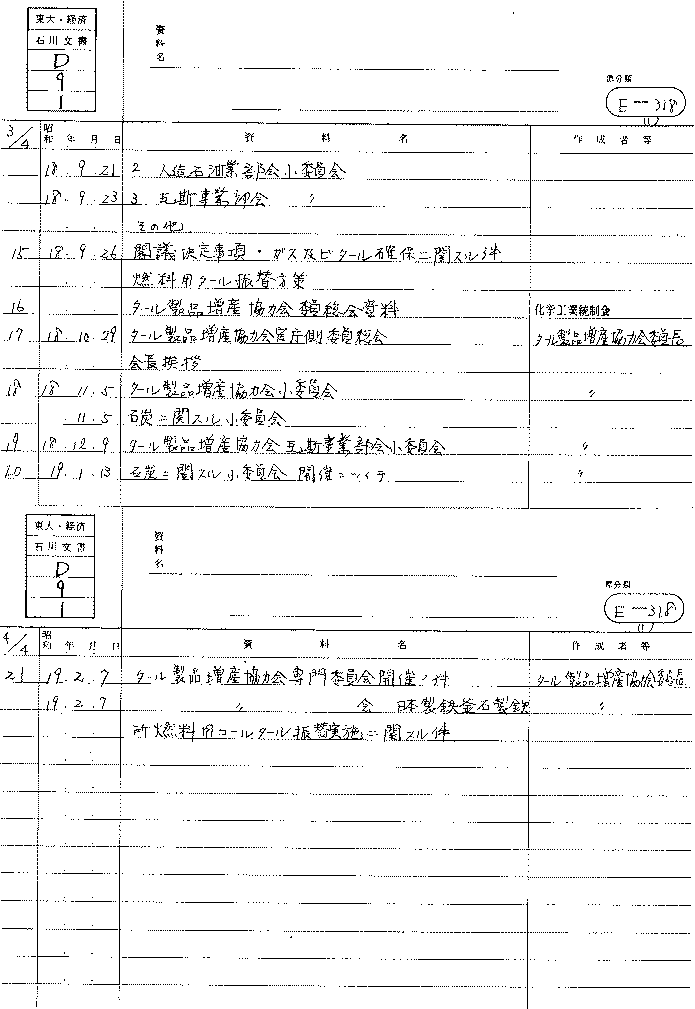 東大・経済
石川文書
D
9
1
資料名
原分類
E-318
(1)
3/4 昭和 年 月 日 資料名 作成者等
18.9.21 2 人造石油業部会小委員会
18.9.23 3 瓦斯事業部会 〃
その他
15 18.9.26 閣議決定事項・ガス及ビタール確保ニ関スル件
燃料用タール振替方策
16 タール製品増産協力会委員総会資料 化学工業統制会
17 18.10.29 タール製品増産協力会官庁側委員総会 タール製品増産協力会委員長
会長挨拶
18 18.11.5 タール製品増産協力会小委員会 〃
11.5 石炭ニ関スル小委員会
19 18.12.9 タール製品増産協力会瓦斯事業部会小委員会 〃
20 19.1.13 石炭ニ関スル小委員会開催ニツイテ 〃
東大・経済
石川文書
D
9
1
資料名
原分類
E-318
(1)
4/4 昭和 年 月 日 資料名 作成者等
21 19.2.7 タール製品増産協力会専門委員会開催ノ件 タール製品増産協力会委員長
19.2.7 〃 会 日本製鉄釜石製鉄 〃
所燃料用コールタール振替実施ニ関スル件